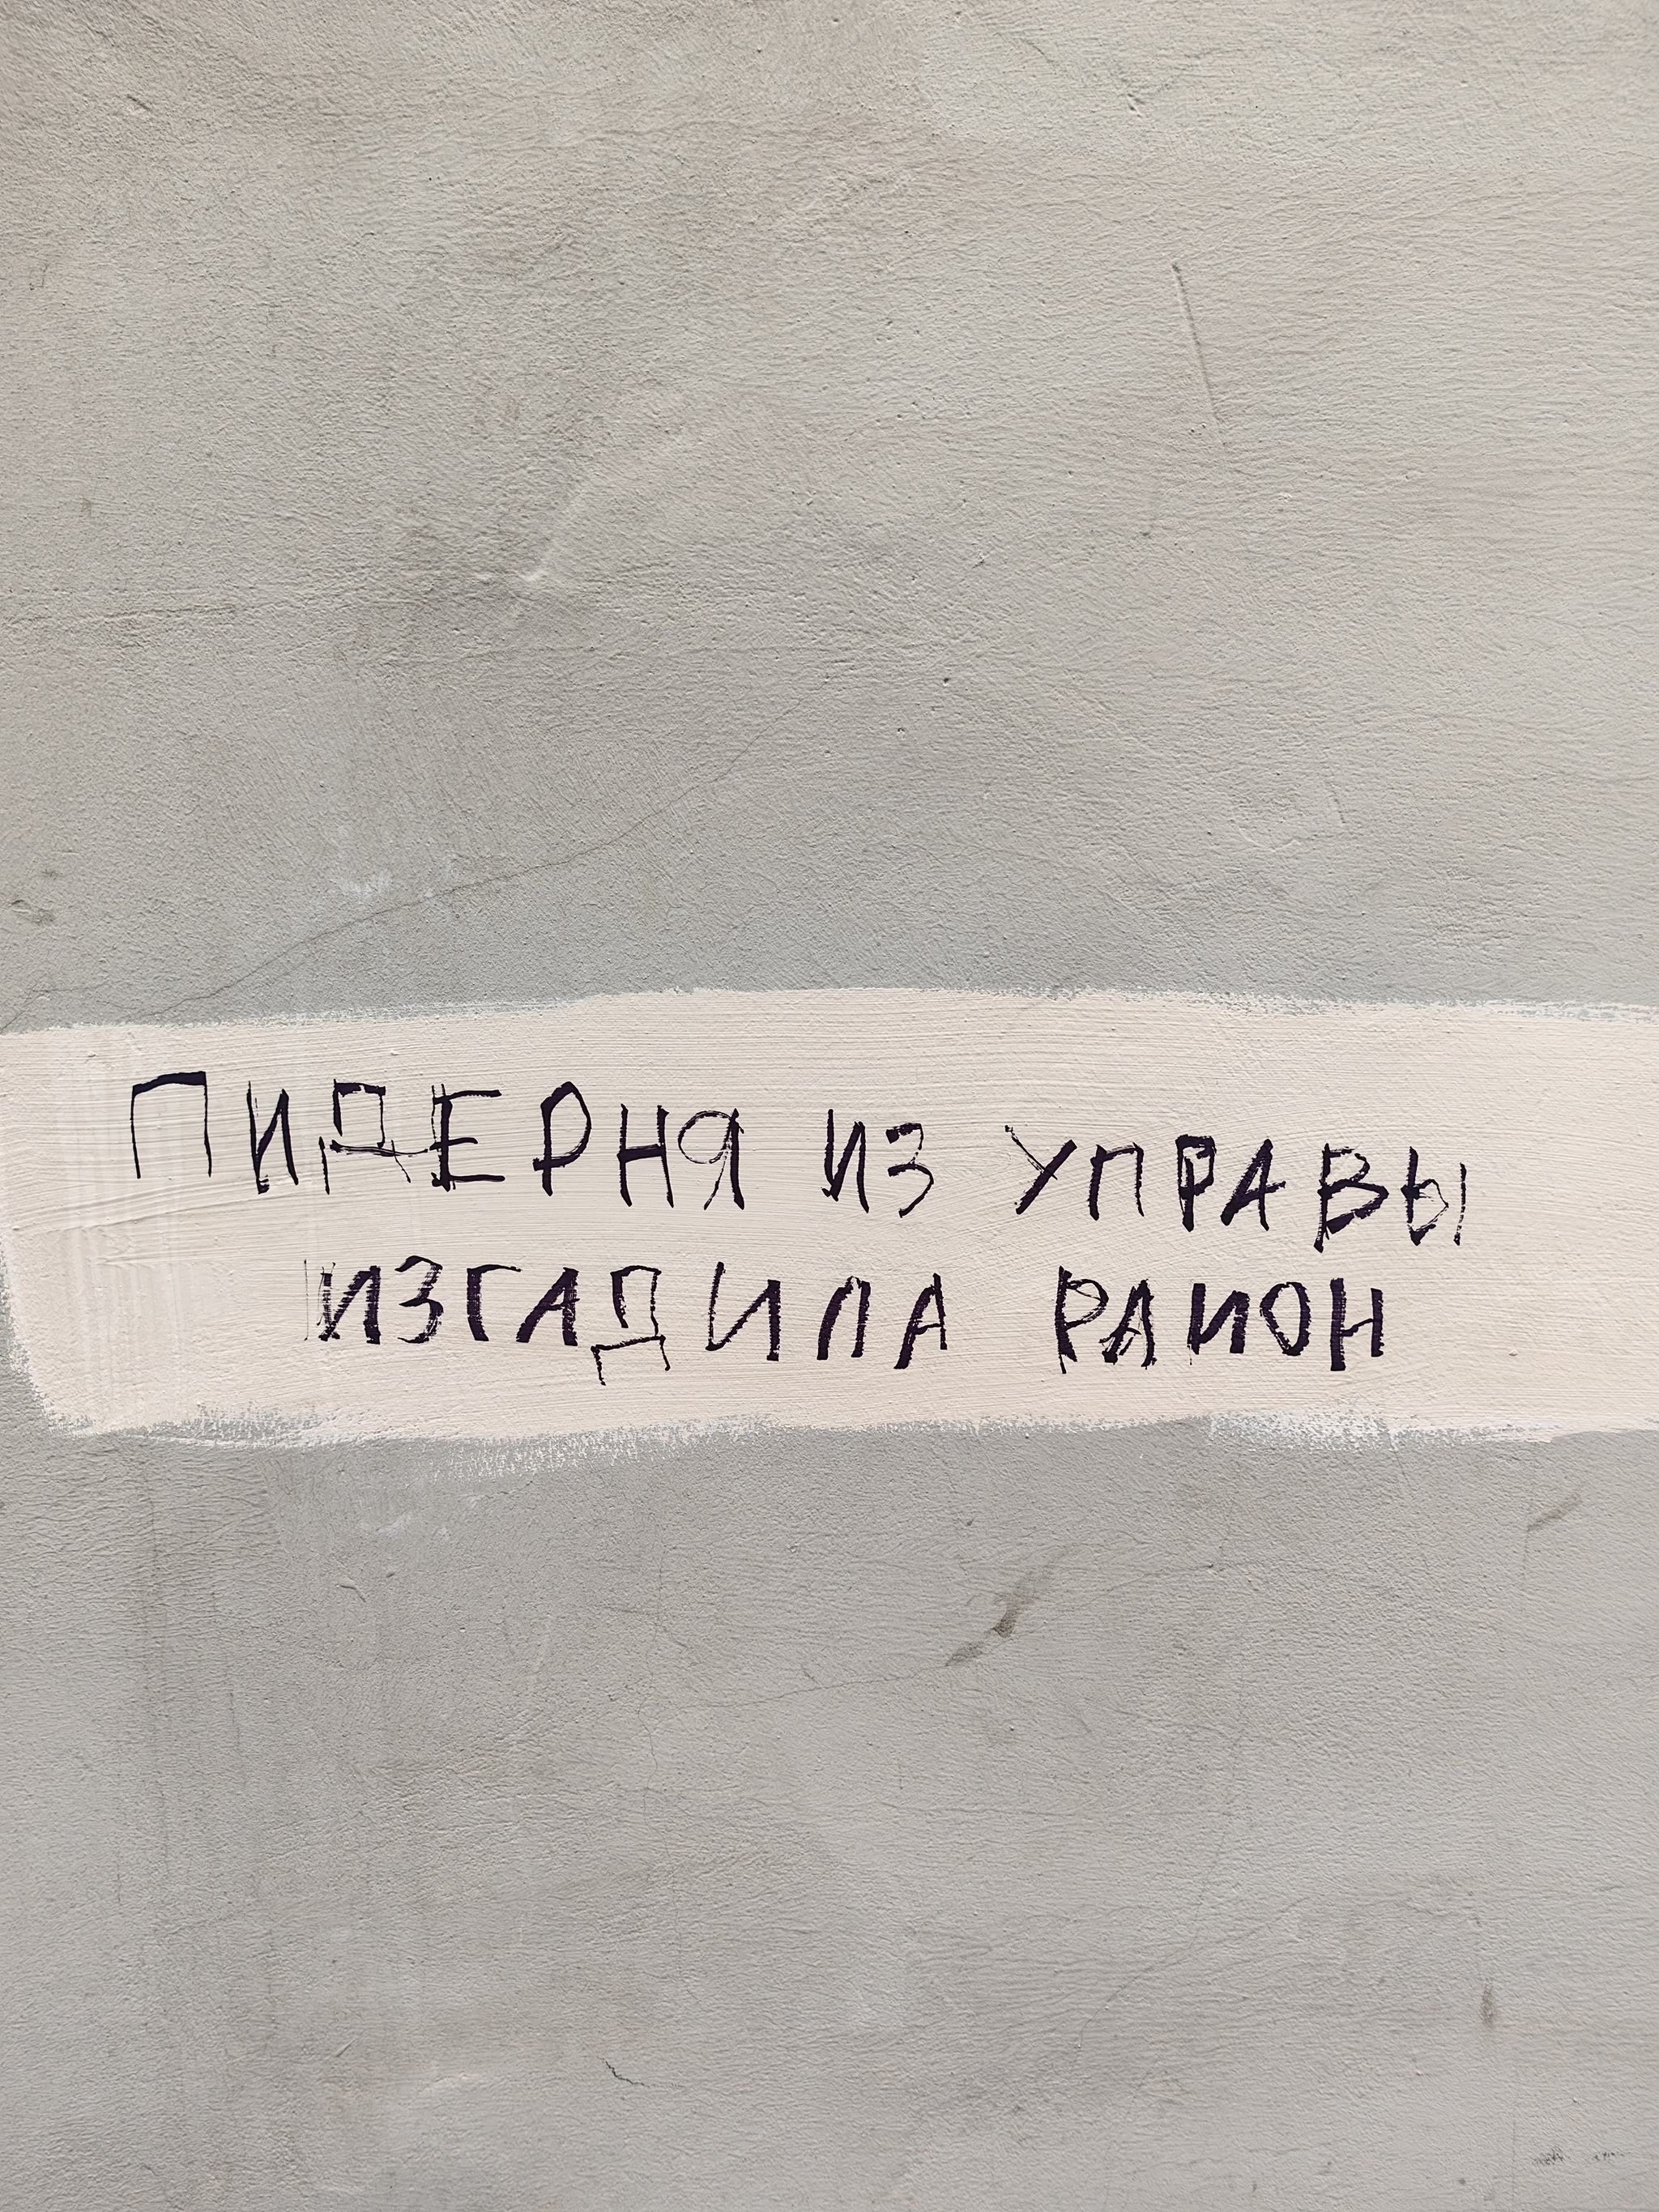 ПИДЕРНЯ ИЗ УПРАВЫ
ИЗГАДИЛА РАИОН